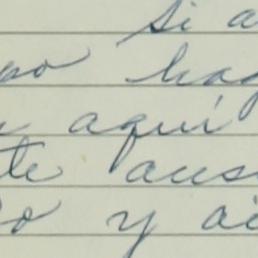 Si a
po hag
aquí
te aus
o y ai